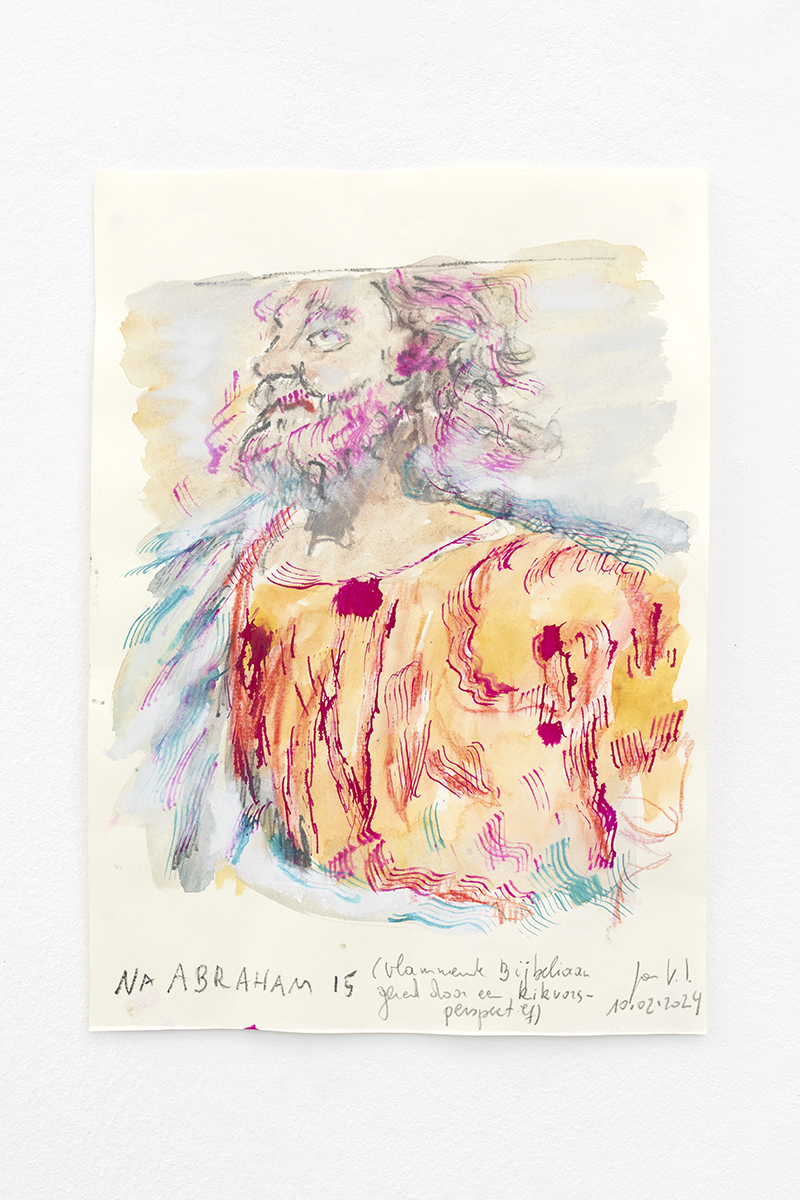 NA ABRAHAM 15
(vlammende Bijbeliaan
gered door een kikvors-
perspectief)
Jan V. I.
10.02.2024